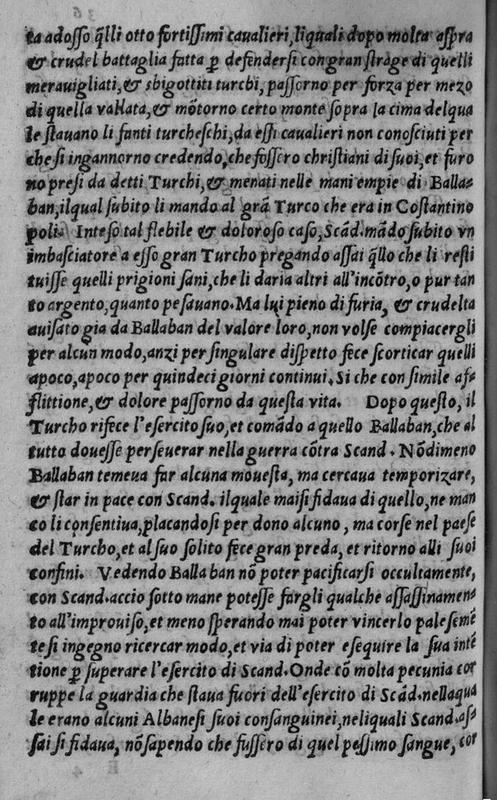 ta adosso q̃lli otto fortissimi caualieri, liquali dopo molta aspra
& crudel battaglia fatta ꝑ defendersi con gran strage di quelli
merauigliati, & sbigottiti turchi, passorno per forza per mezo
di quella vallata, & mõtorno certo monte sopra la cima delqua
le stauano li fanti turcheschi, da essi caualieri non conosciuti per
che si ingannorno credendo, che fossero christiani di suoi, et furo
no presi da detti Turchi, & menati nelle mani empie di Balla-
ban, ilqual subito li mando al grã Turco che era in Costantino
poli. Inteso tal flebile & doloroso caso, Scãd. mãdo subito vn
imbasciatore a esso gran Turcho pregando assai q̃llo che li resti
tuisse quelli prigioni sani, che li daria altri all'incõtro, o pur tan
to argento, quanto pesauano. Ma lui pieno di furia, & crudelta
auisato gia da Ballaban del valore loro, non volse compiacergli
per alcun modo, anzi per singulare dispetto fece scorticar quelli
apoco, apoco per quindeci giorni continui. Si che con simile af-
flittione, & dolore passorno da questa vita. Dopo questo, il
Turcho rifece l'esercito suo, et comãdo a quello Ballaban, che al
tutto douesse perseuerar nella guerra cõtra Scand. Nõdimeno
Ballaban temeua far alcuna mouesta, ma cercaua temporizare,
& star in pace con Scand. ilquale mai si fidaua di quello, ne man
co li consentiua, placandosi per dono alcuno, ma corse nel paese
del Turcho, et al suo solito fece gran preda, et ritorno alli suoi
confini. Vedendo Ballaban nõ poter pacificarsi occultamente,
con Scand. accio sotto mane potesse fargli qualche assassinamen-
to all'improuiso, et meno sperando mai poter vincerlo palesemẽ
te si ingegno ricercar modo, et via di poter esequire la sua intẽ
tione ꝑ superare l'esercito di Scand. Onde cõ molta pecunia cor
ruppe la guardia che staua fuori dell'esercito di Scãd. nellaqua
le erano alcuni Albanesi suoi consanguinei, neliquali Scand. as-
sai si fidaua, nõ sapendo che fussero di quel pessimo sangue, cor